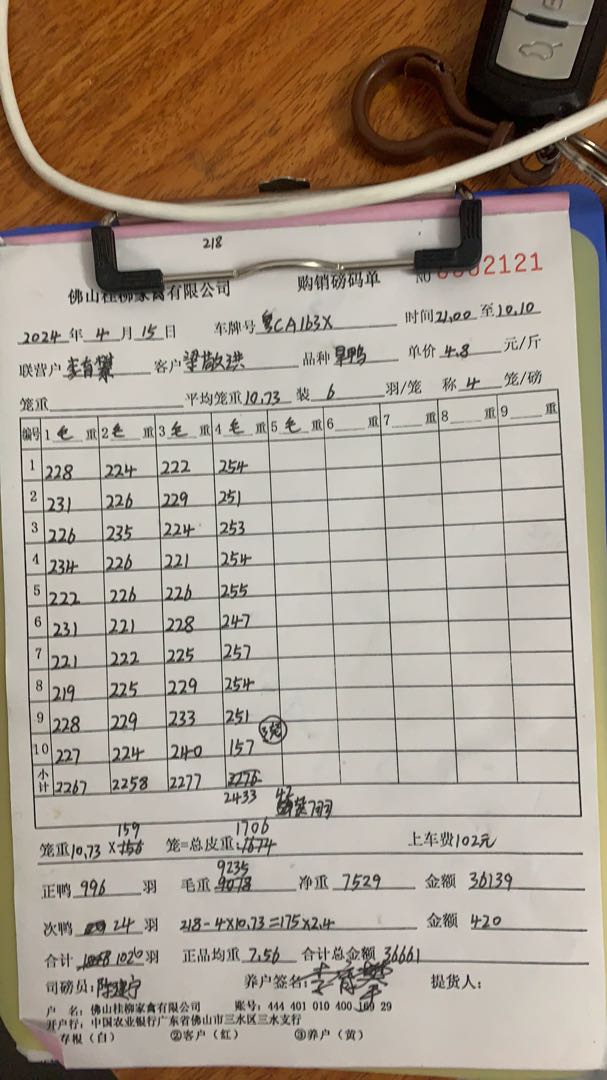 218
佛山桂柳家禽有限公司 购销磅码单 NO 2121
2024年4月15日 车牌号 粤CA163X 时间21,00至10.10
联营户 客户 梁敬洪 品种 旱鸭 单价 4.8 元/斤
笼重 平均笼重10.73 装 6 羽/笼 称 4 笼/磅
编号 1 毛 重 2 毛 重 3 毛 重 4 毛 重 5 毛 重 6 重 7 重 8 重 9 重
1 228 224 222 254
2 231 226 229 251
3 226 235 224 253
4 234 226 221 254
5 222 226 226 255
6 231 221 228 247
7 221 222 225 257
8 219 225 229 254
9 228 229 233 251
10 227 224 240 157 3笼
小计 2267 2258 2277 2276
2433 42 装7羽
159 1706
笼重10,73×156 笼=总皮重:1674 上车费102元
9235
正鸭 996 羽 毛重 9078 净重 7529 金额 36139
次鸭 24 羽 218-4×10,73=175×2.4 金额 420
合计 1020羽 正品均重 7.56 合计总金额 36661
司磅员: 养户签名: 提货人:
户 名: 佛山桂柳家禽有限公司 账号: 444 401 010 400 169 29
开户行: 中国农业银行广东省佛山市三水区三水支行
存根（白） ②客户（红） ③养户（黄）